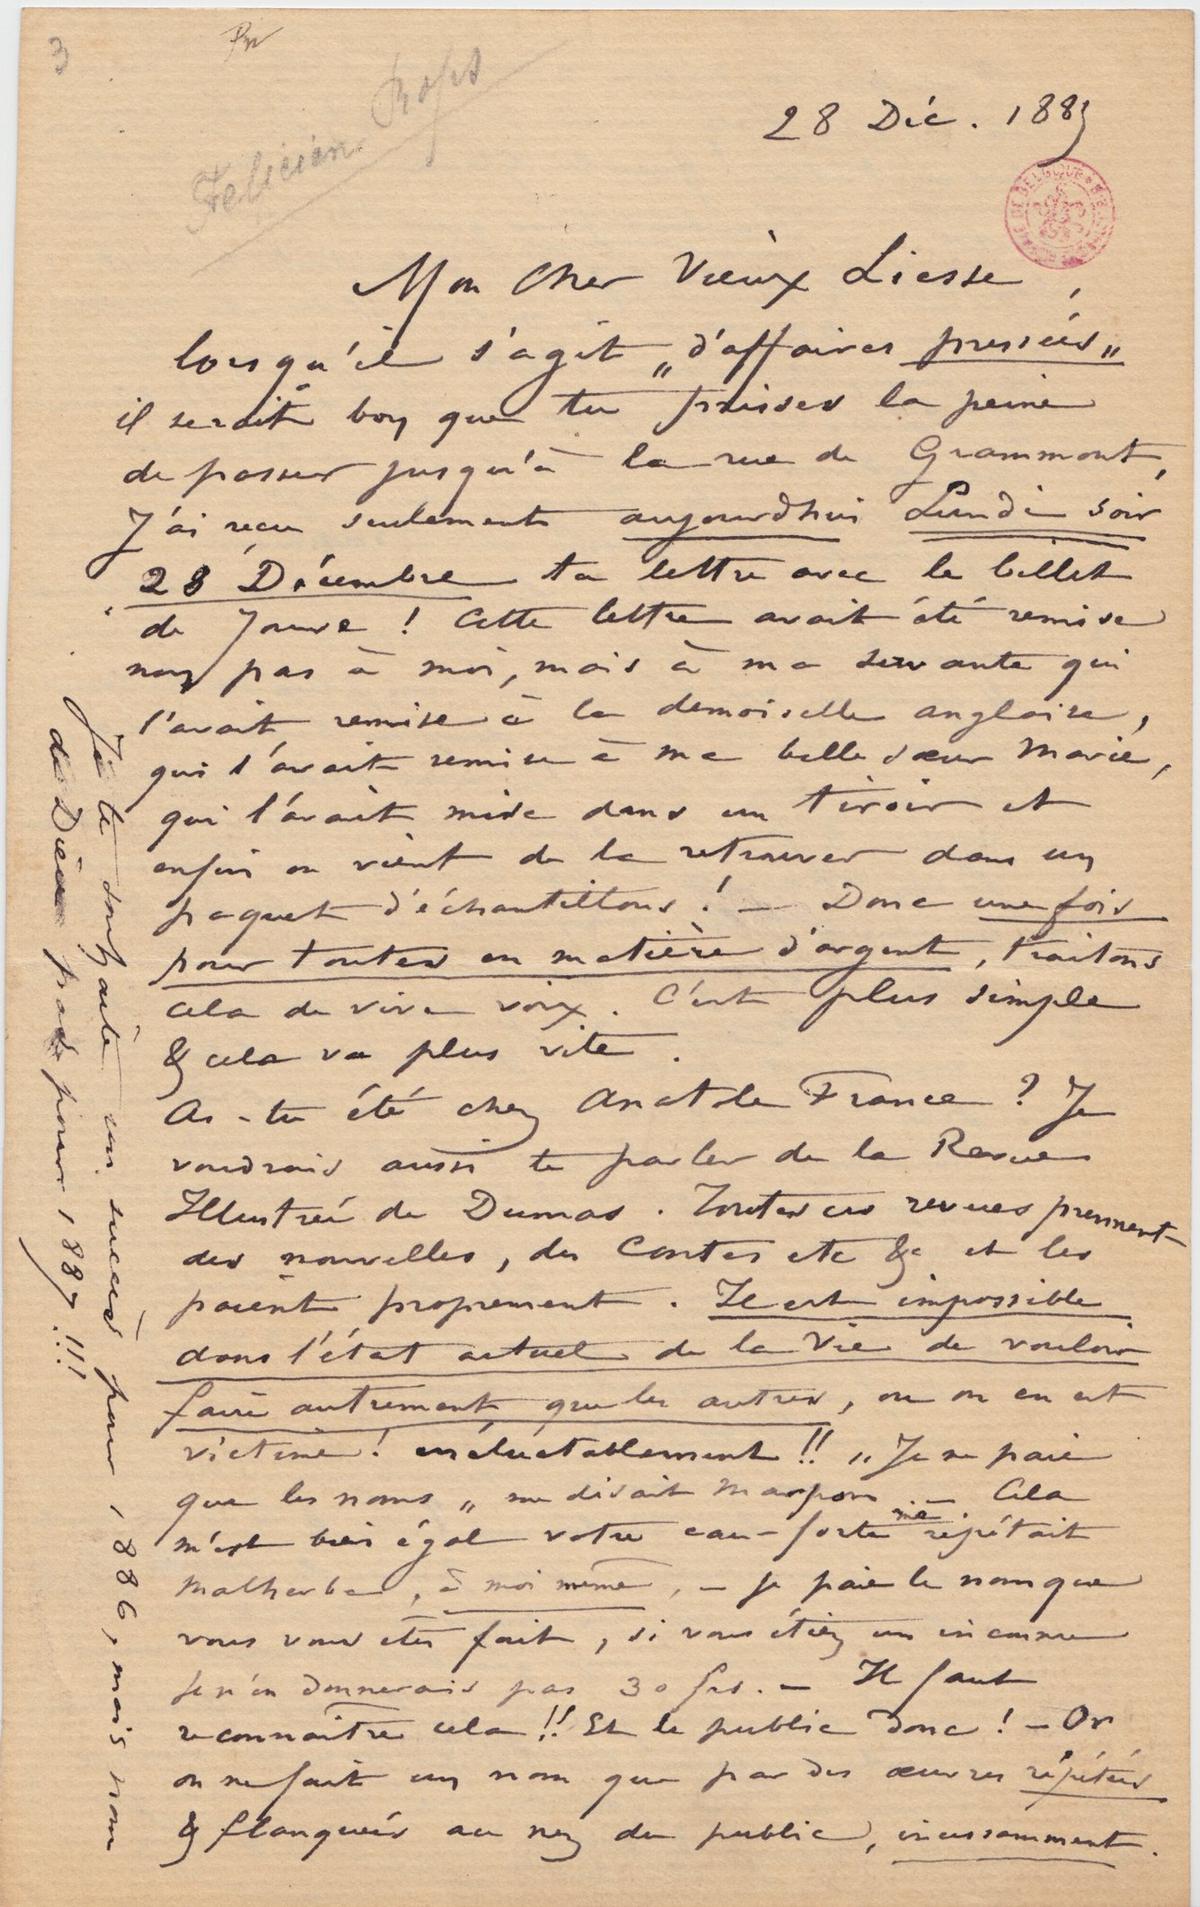 3
Félicien Rops
28 Déc. 1885
Mon Cher Vieux Liesse,
lorsqu'il s'agit „d'affaires pressées„
il serait bon que tu prisses la peine
de passer jusqu'à la rue de Grammont,
J'ai reçu seulement aujourdhui Lundi soir
28 Décembre ta lettre avec le billet
de Jouve ! Cette lettre avait été remise
non pas à moi, mais à ma servante qui
l'avait remise à la demoiselle anglaise,
qui l'avait remise à ma belle sœur Marie,
qui l'avait mise dans un tiroir et
enfin on vient de la retrouver dans un
paquet d'échantillons ! — Donc une fois
pour toutes en matière d'argent, traitons
cela de vive voix. C'est plus simple
& cela va plus vite.
As-tu été chez Anatole France ? Je
voudrais aussi te parler de la Revue
Illustrée de Dumas. Toutes ces revues prennent
des nouvelles, des Contes etc &c et les
paient proprement. Il est impossible
dans l'état actuel de la Vie de vouloir
faire autrement que les autres, ou on en est
victime ! inéluctablement !! „Je ne paie
que les noms„ me disait Marpon. — Cela
m'est bien égal votre eau-forte me répétait
Malherbe, à moi même, — je paie le nom que
vous vous êtes fait, si vous étiez un inconnu
je n'en donnerais pas 30 frs. — Il faut
reconnaître cela !! Et le public donc ! — Or
on ne fait un nom que par des œuvres répétées
& flanquées au nez du public, incessamment.
Je te souhaite un succès pour 1886, mais non
de Dieu pas pour 1887 !!!